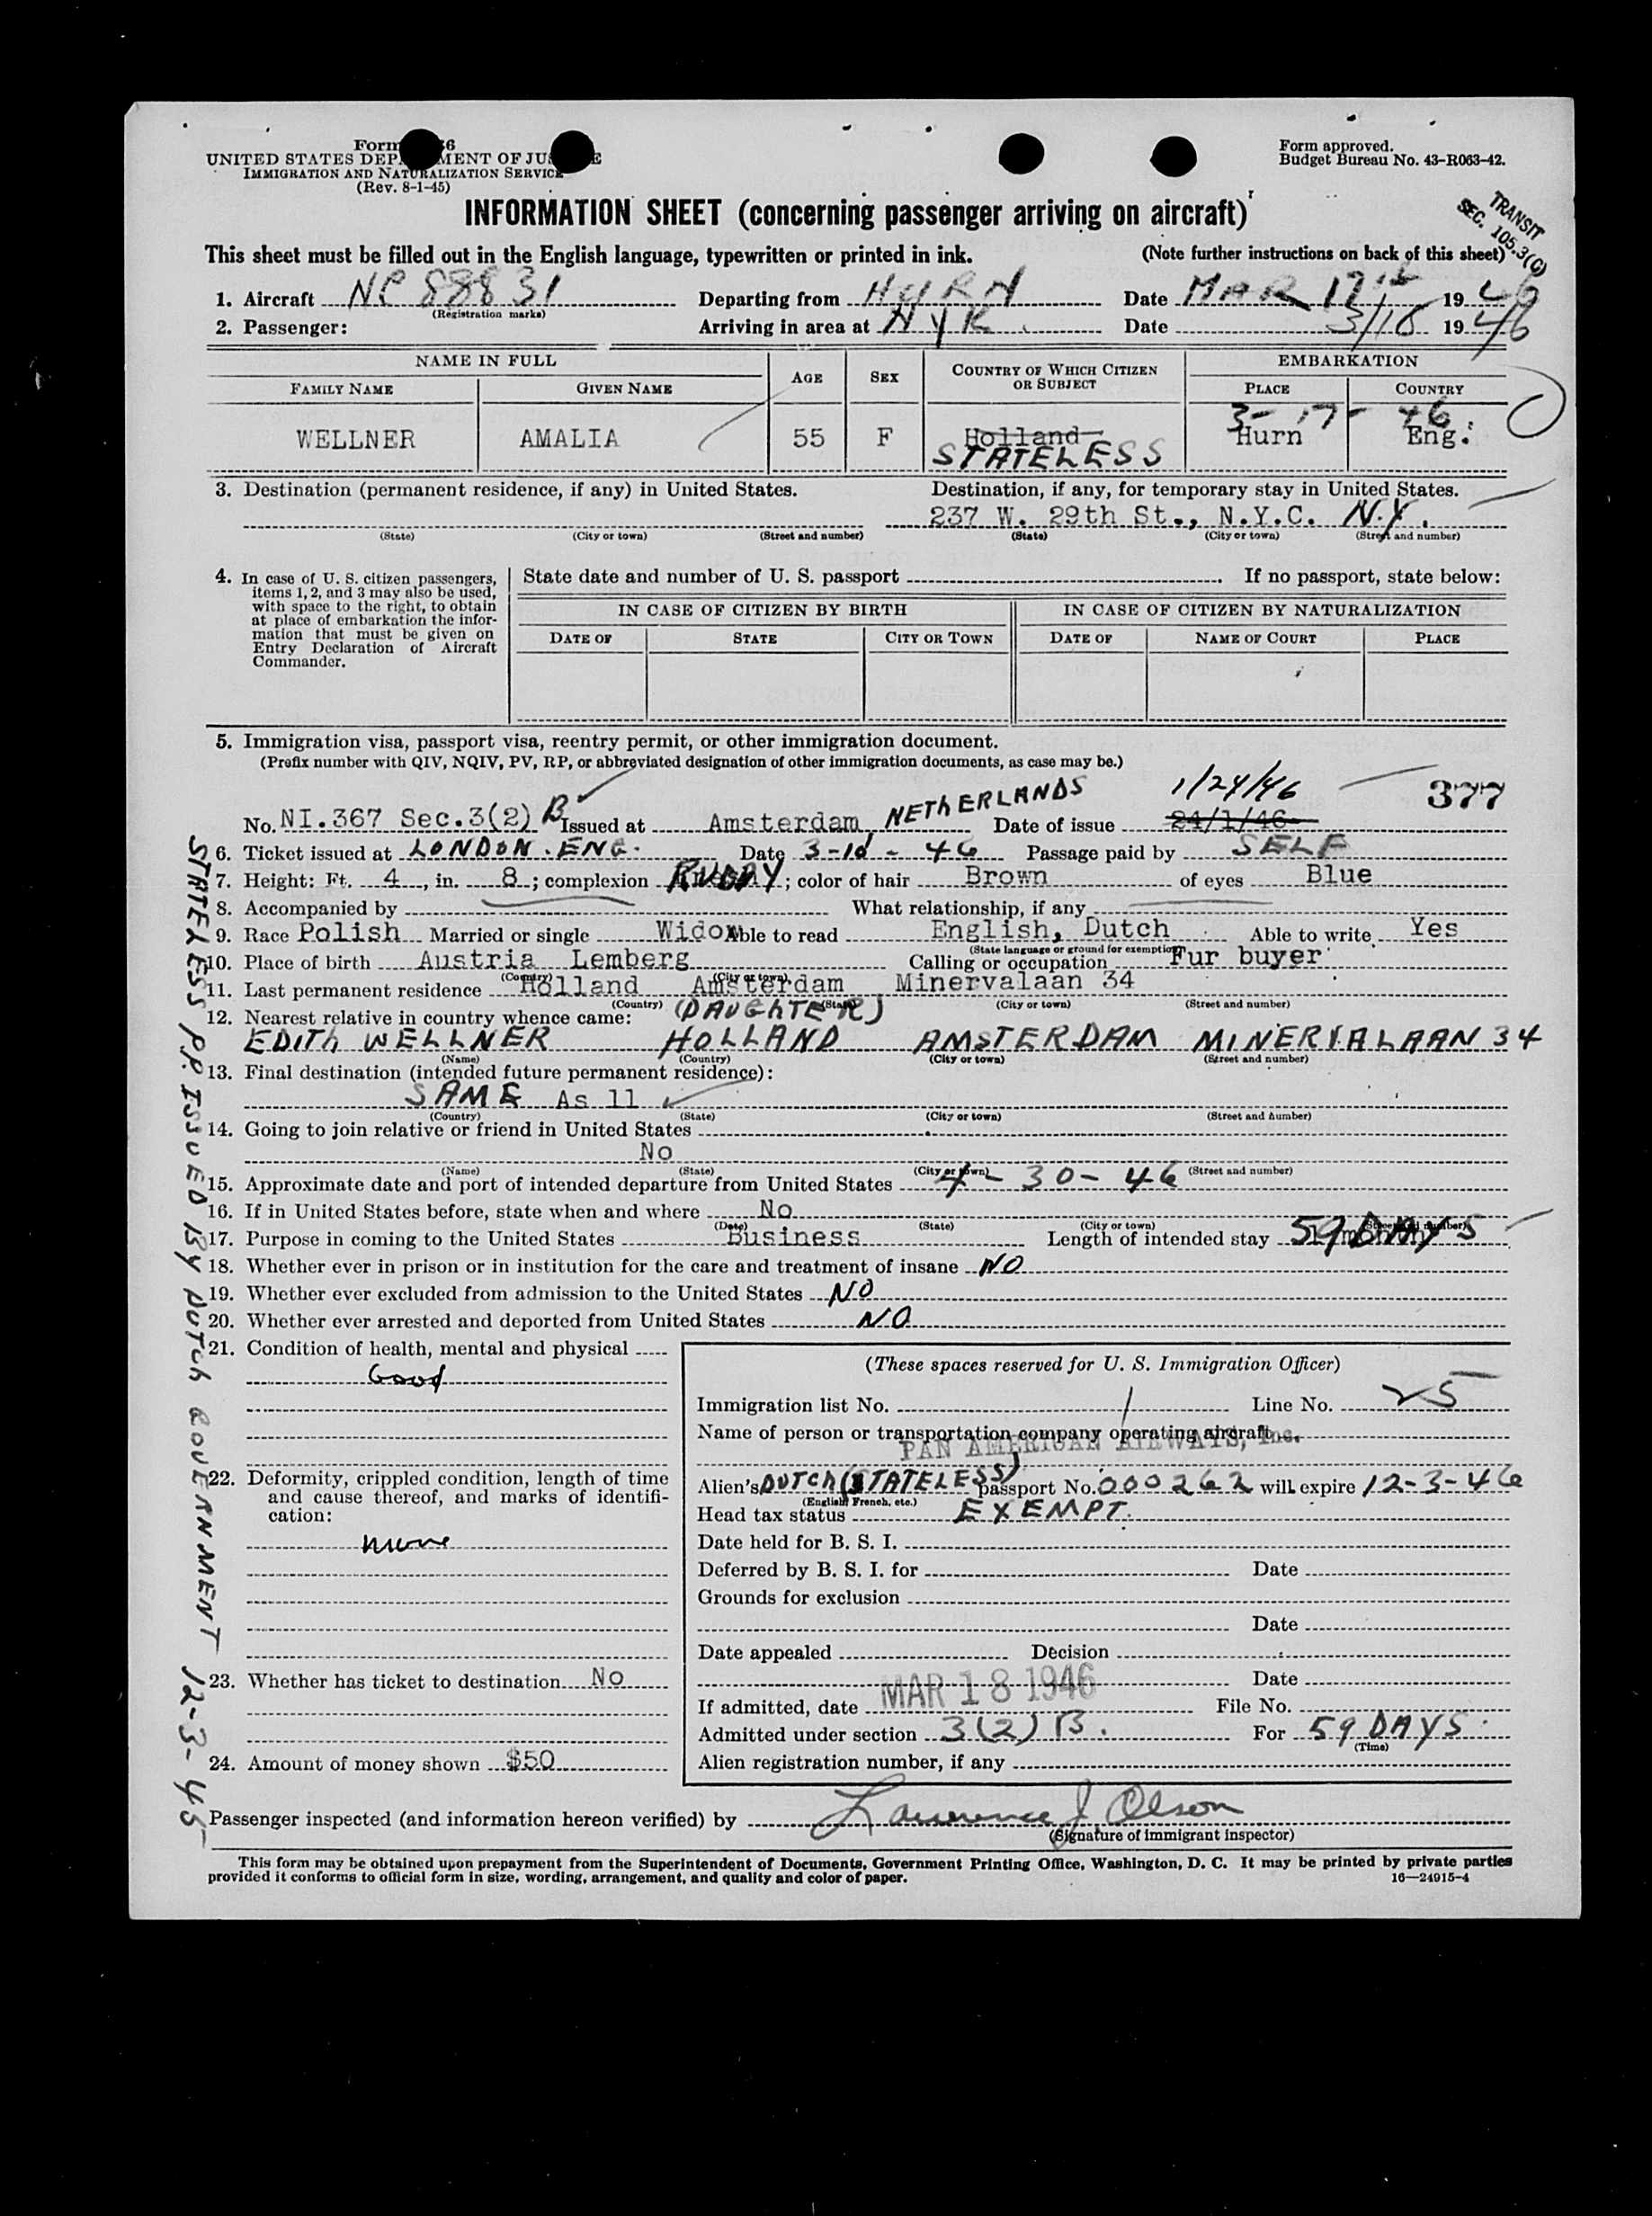 Form
UNITED STATES DEP MENT OF JU E
IMMIGRATION AND NATURALIZATION SERVICE
(Rev. 8-1-45)
Form approved.
Budget Bureau No. 43-R063-42.
INFORMATION SHEET (concerning passenger arriving on aircraft)
TRANSIT
SEC. 105.3(C)
This sheet must be filled out in the English language, typewritten or printed in ink. (Note further instructions on back of this sheet)
1. Aircraft NC 88831 Departing from HURN Date MAR 17 1946
(Registration marks)
2. Passenger: Arriving in area at NYK. Date 3/18 1946
NAME IN FULL AGE SEX COUNTRY OF WHICH CITIZEN OR SUBJECT EMBARKATION
FAMILY NAME GIVEN NAME PLACE COUNTRY
3-17-46
WELLNER AMALIA 55 F Holland Hurn Eng.
STATELESS
3. Destination (permanent residence, if any) in United States. Destination, if any, for temporary stay in United States.
237 W. 29th St., N.Y.C. N.Y.
(State) (City or town) (Street and number) (State) (City or town) (Street and number)
4. In case of U. S. citizen passengers, items 1, 2, and 3 may also be used, with space to the right, to obtain at place of embarkation the information that must be given on Entry Declaration of Aircraft Commander.
State date and number of U. S. passport . If no passport, state below:
IN CASE OF CITIZEN BY BIRTH IN CASE OF CITIZEN BY NATURALIZATION
DATE OF STATE CITY OR TOWN DATE OF NAME OF COURT PLACE
5. Immigration visa, passport visa, reentry permit, or other immigration document.
(Prefix number with QIV, NQIV, PV, RP, or abbreviated designation of other immigration documents, as case may be.)
1/24/46 377
No. NI.367 Sec.3(2) B Issued at Amsterdam NETHERLANDS Date of issue 24/1/46
6. Ticket issued at LONDON. ENG. Date 3-10-46 Passage paid by SELF
7. Height: Ft. 4, in. 8; complexion RUDDY; color of hair Brown of eyes Blue
8. Accompanied by What relationship, if any
9. Race Polish Married or single Widow Able to read English, Dutch Able to write Yes
(State language or ground for exemption)
10. Place of birth Austria Lemberg Calling or occupation Fur buyer
(Country) (City or town)
11. Last permanent residence Holland Amsterdam Minervalaan 34
(Country) (State) (City or town) (Street and number)
12. Nearest relative in country whence came: (DAUGHTER)
EDITH WELLNER HOLLAND AMSTERDAM MINERVALAAN 34
(Name) (Country) (City or town) (Street and number)
13. Final destination (intended future permanent residence):
SAME As 11
(Country) (State) (City or town) (Street and number)
14. Going to join relative or friend in United States
No
(Name) (State) (City or town) (Street and number)
15. Approximate date and port of intended departure from United States 4-30-46
16. If in United States before, state when and where No
(Date) (State) (City or town) (Street and number)
17. Purpose in coming to the United States Business Length of intended stay 59 DAYS
18. Whether ever in prison or in institution for the care and treatment of insane NO
19. Whether ever excluded from admission to the United States NO
20. Whether ever arrested and deported from United States NO
21. Condition of health, mental and physical
Good
22. Deformity, crippled condition, length of time and cause thereof, and marks of identification:
none
23. Whether has ticket to destination No
24. Amount of money shown $50
(These spaces reserved for U. S. Immigration Officer)
Immigration list No. 1 Line No. 25
Name of person or transportation company operating aircraft
PAN AMERICAN AIRWAYS, Inc.
Alien's DUTCH (STATELESS) passport No. 000262 will expire 12-3-46
(English, French, etc.)
Head tax status EXEMPT.
Date held for B. S. I.
Deferred by B. S. I. for Date
Grounds for exclusion
Date
Date appealed Decision
Date
If admitted, date MAR 18 1946 File No.
Admitted under section 3(2) B. For 59 DAYS.
(Time)
Alien registration number, if any
Passenger inspected (and information hereon verified) by Lawrence J Olson
(Signature of immigrant inspector)
This form may be obtained upon prepayment from the Superintendent of Documents, Government Printing Office, Washington, D. C. It may be printed by private parties
provided it conforms to official form in size, wording, arrangement, and quality and color of paper. 16—24915-4
STATELESS PP. ISSUED BY DUTCH GOVERNMENT 12-3-45